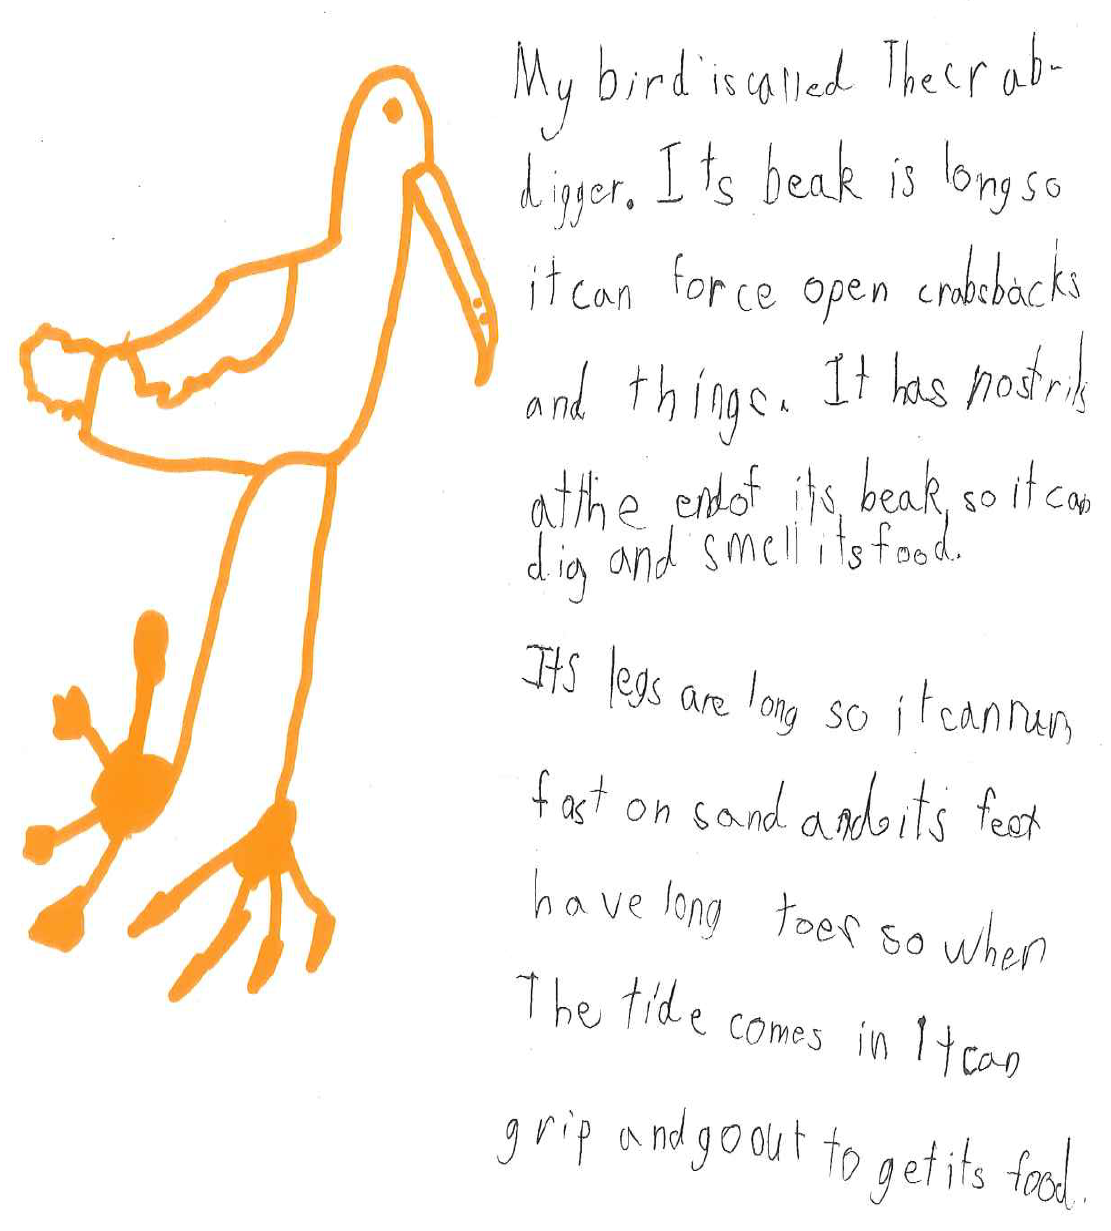 My bird is called The crab-
digger. Its beak is long so
it can force open crabs backs
and things. It has nostrils
at the end of its beak so it can
dig and smell its food.
Its legs are long so it can run
fast on sand and its feet
have long toes so when
The tide comes in It can
grip and go out to get its food.